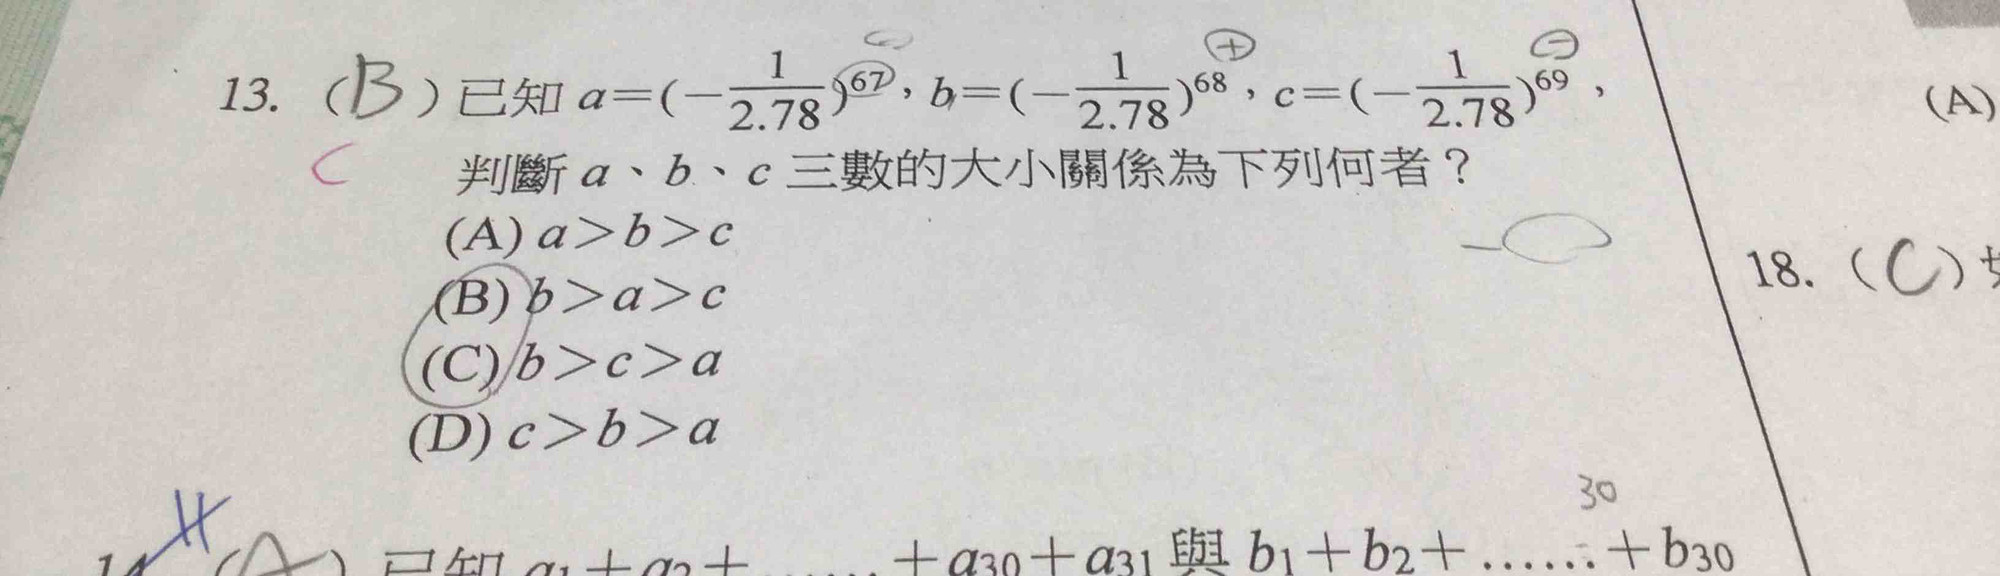 13. (B) 已知 a=(-1/2.78)^67, b=(-1/2.78)^68, c=(-1/2.78)^69,
C 判斷 a、b、c 三數的大小關係為下列何者?
(A) a>b>c
(B) b>a>c
(C) b>c>a
(D) c>b>a
30
(A) 已知 a1+a2+……+a30+a31 與 b1+b2+……+b30
(A)
18. (C)